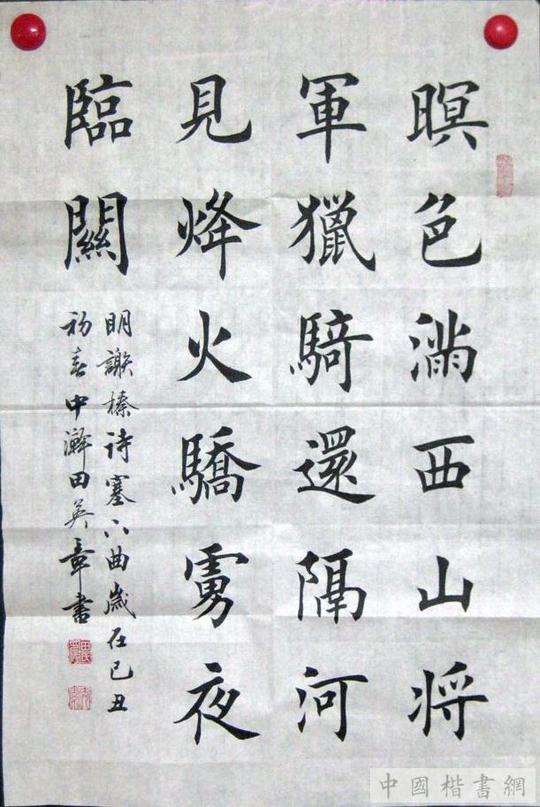 暝色滿西山将
軍獵騎還隔河
見烽火驕虜夜
臨關
明謝榛诗塞下曲歲在己丑
初春中澣田英章書
中國楷書網